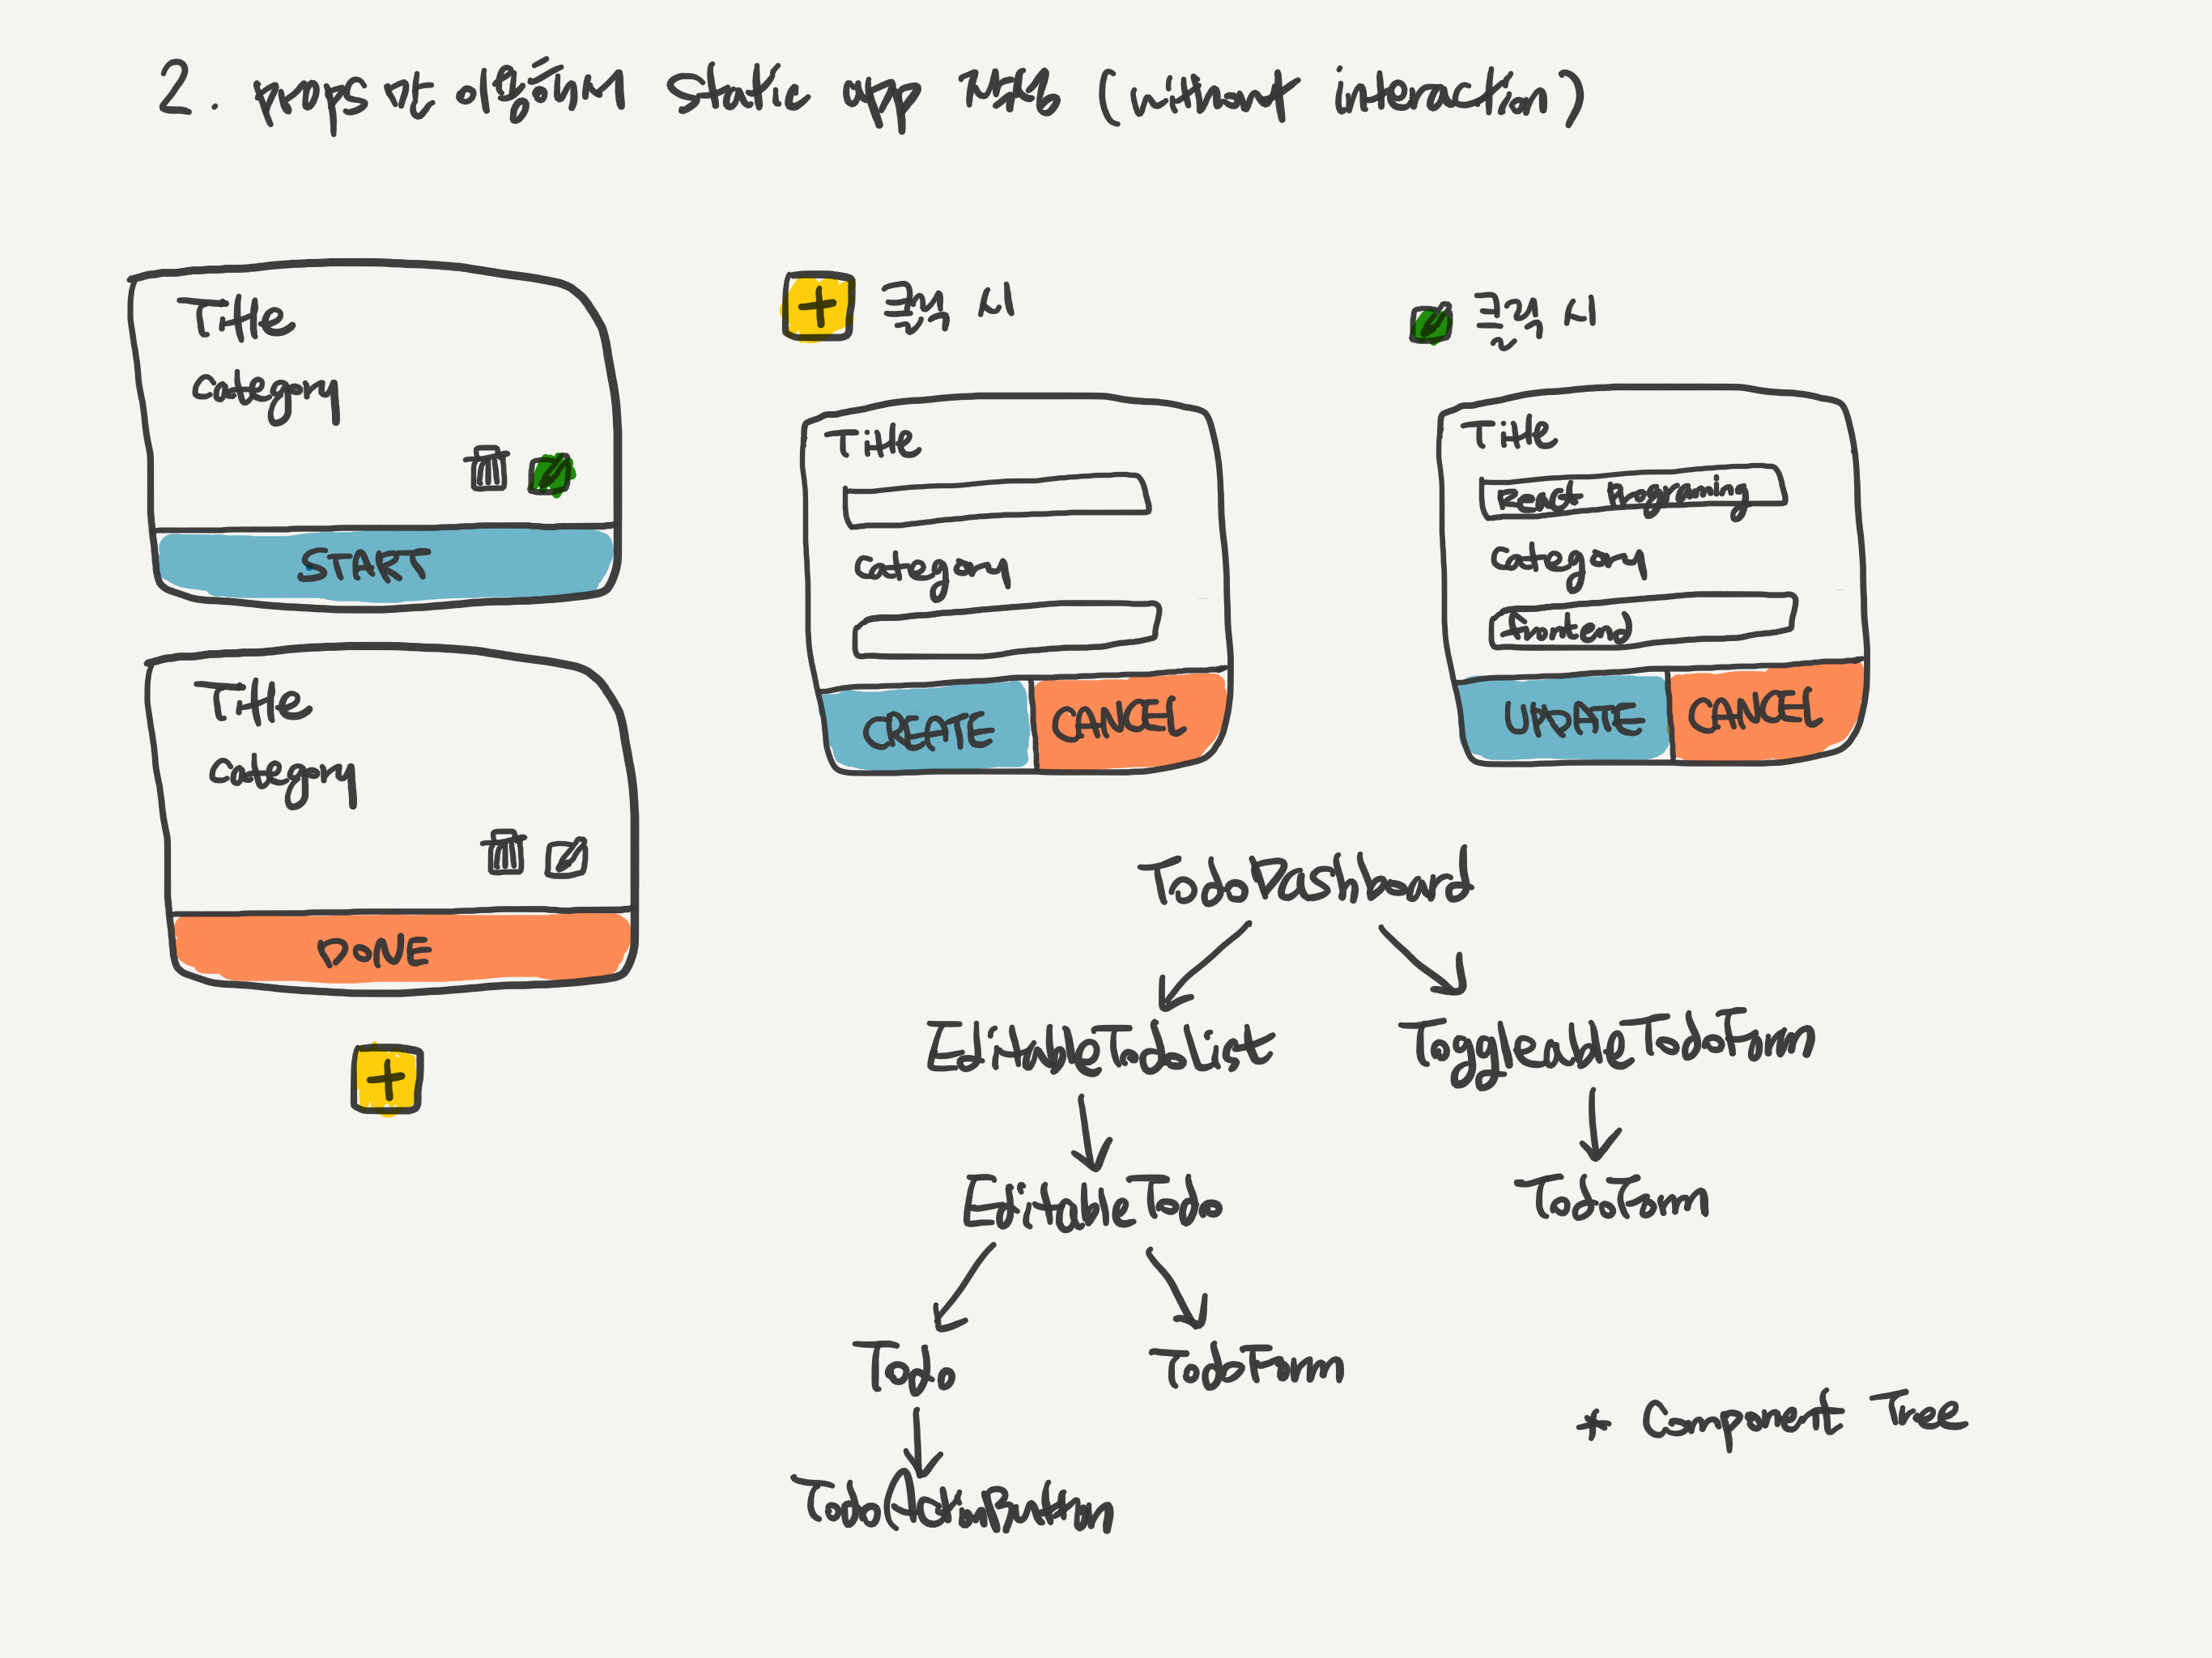 2. props만 이용하여 static app (without interaction)
Title
Category
START
Title
Category
DONE
+
+ 클릭 시
Title
Category
CREATE CANCEL
클릭 시
Title
React Programing
Category
frontend
UPDATE CANCEL
TodoDashboard
EditableTodoList ToggleableTodoForm
EditableTodo TodoForm
Todo TodoForm
TodoActionButton
* Component Tree